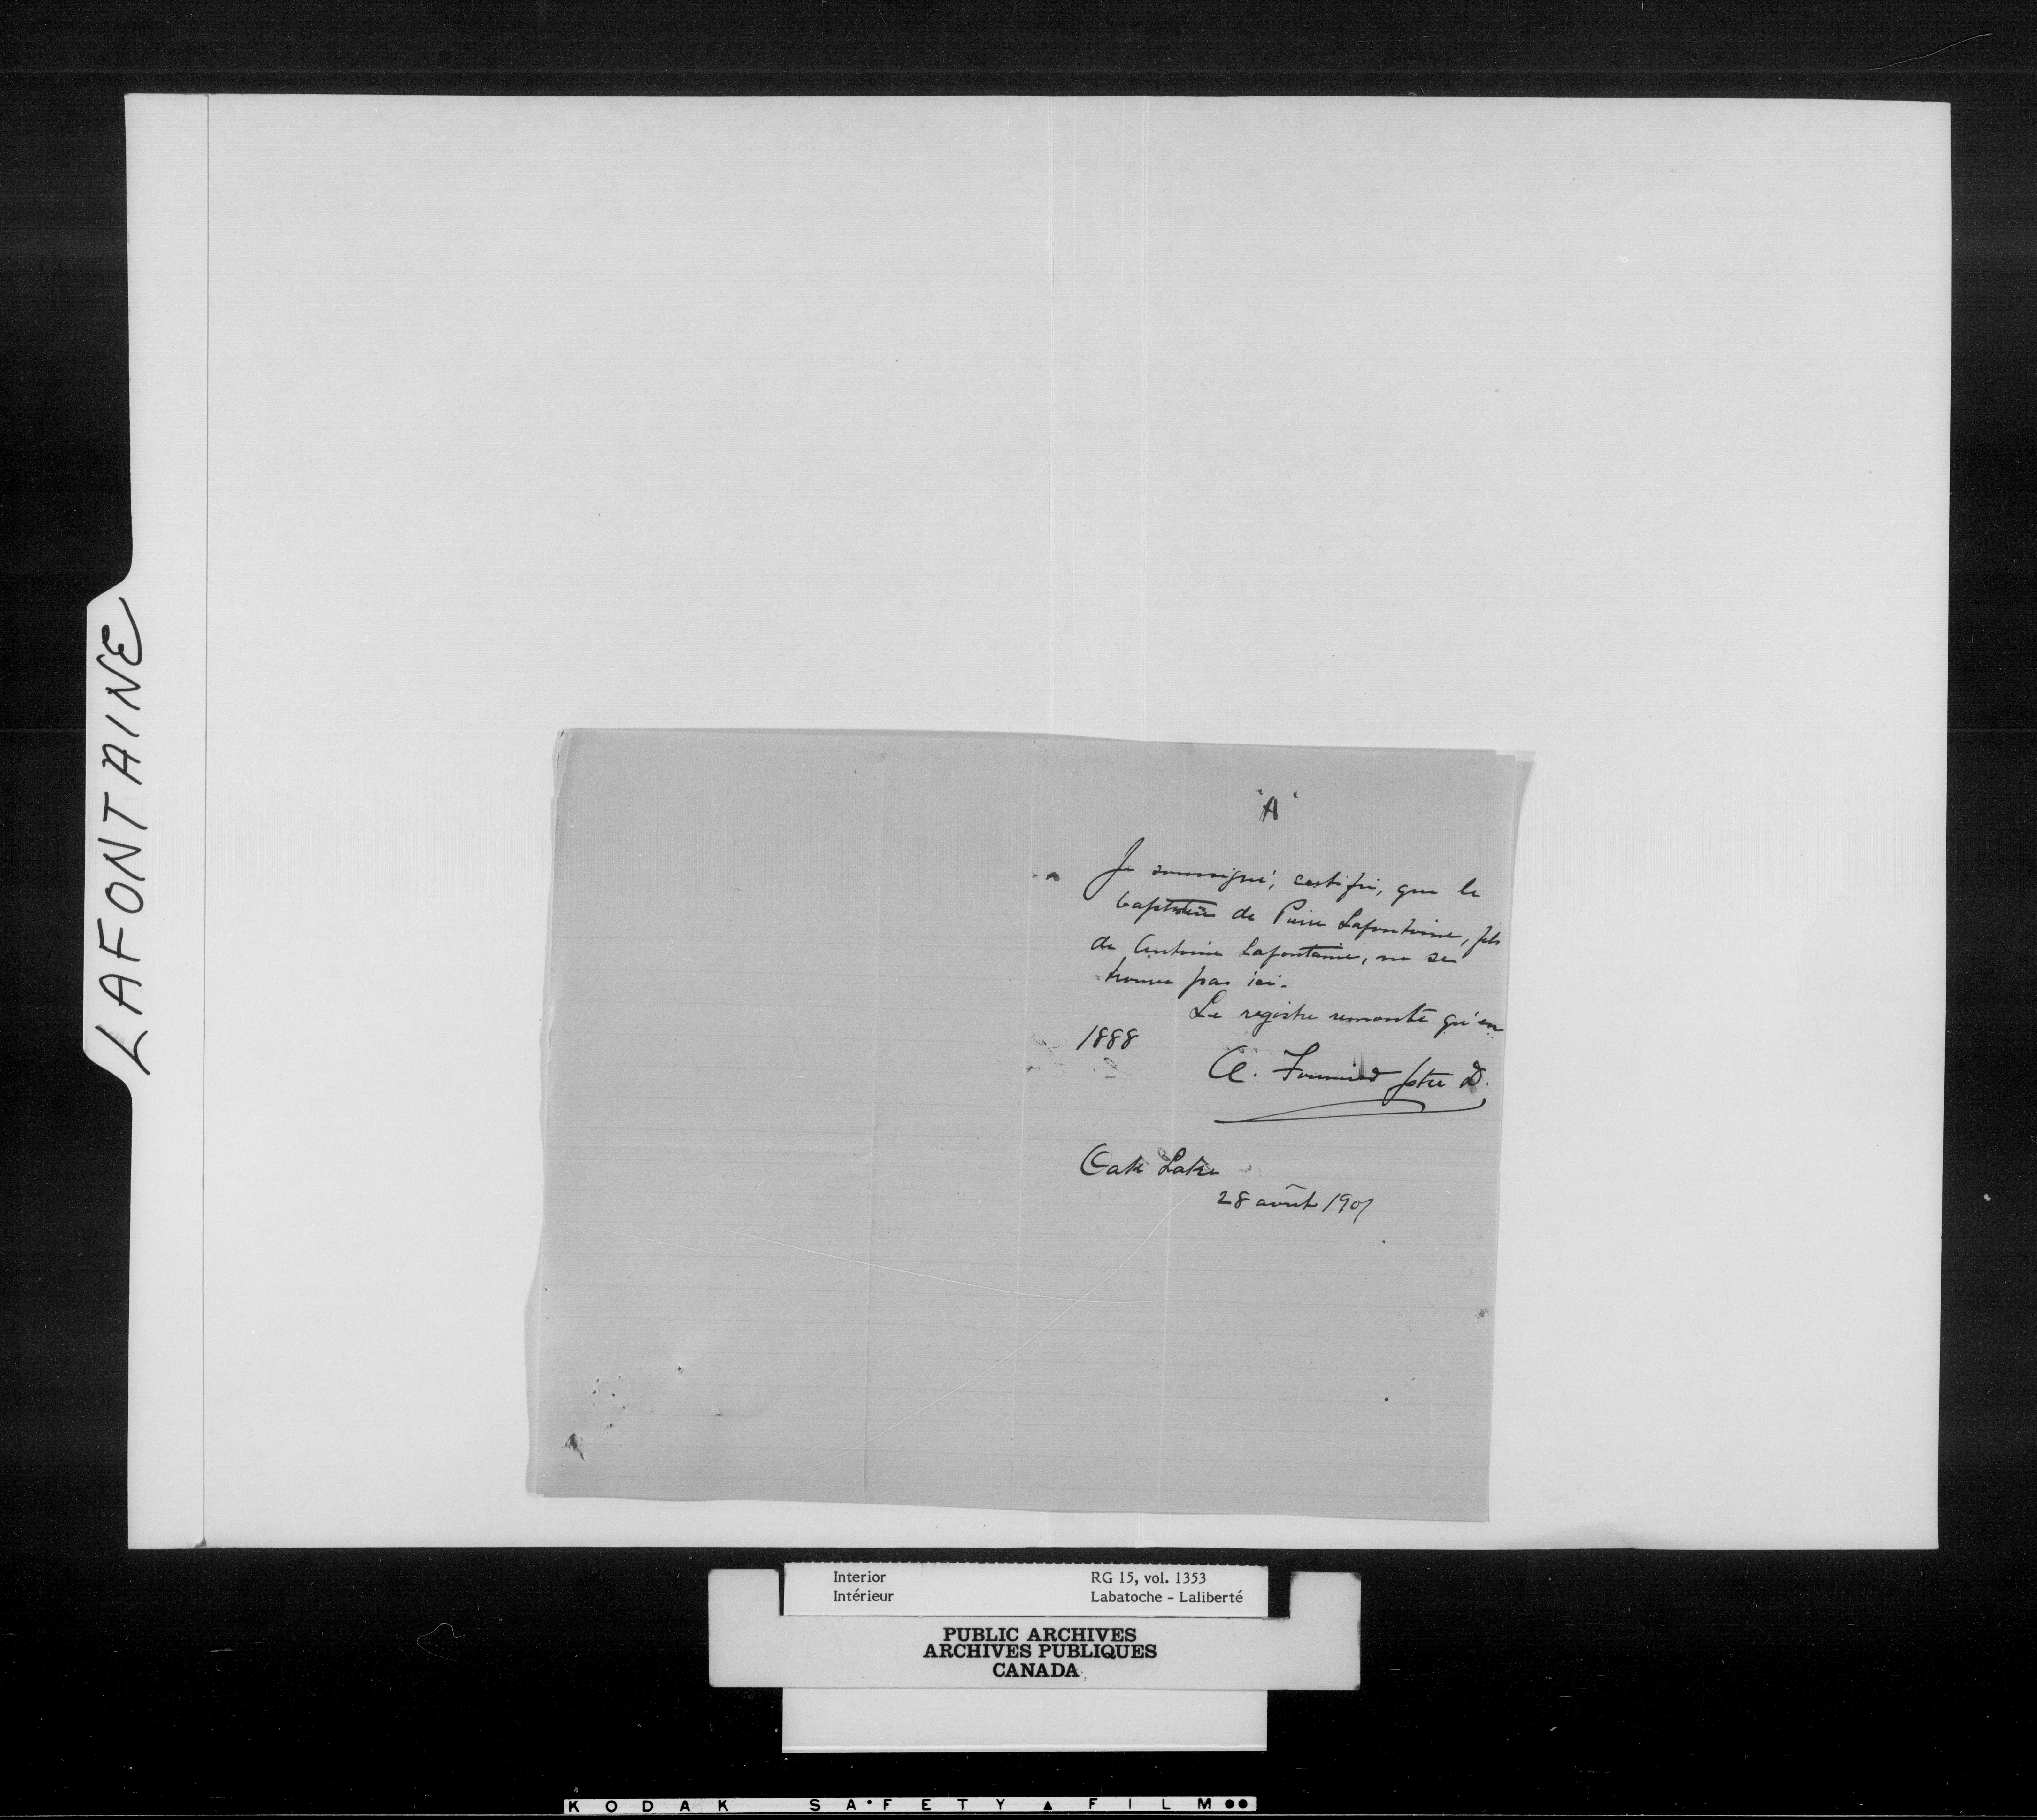 LAFONTAINE
"A"
Je soussigné, certifie, que le
baptistère de Pierre Lafontaine, fils
de Antoine Lafontaine, ne se
trouve pas ici.
Le registre remonte qu'en
1888
A. ptre D.
Oak Lake
28 août 1901
Interior RG 15, vol. 1353
Intérieur Labatoche - Laliberté
PUBLIC ARCHIVES
ARCHIVES PUBLIQUES
CANADA
KODAK SAFETY FILM